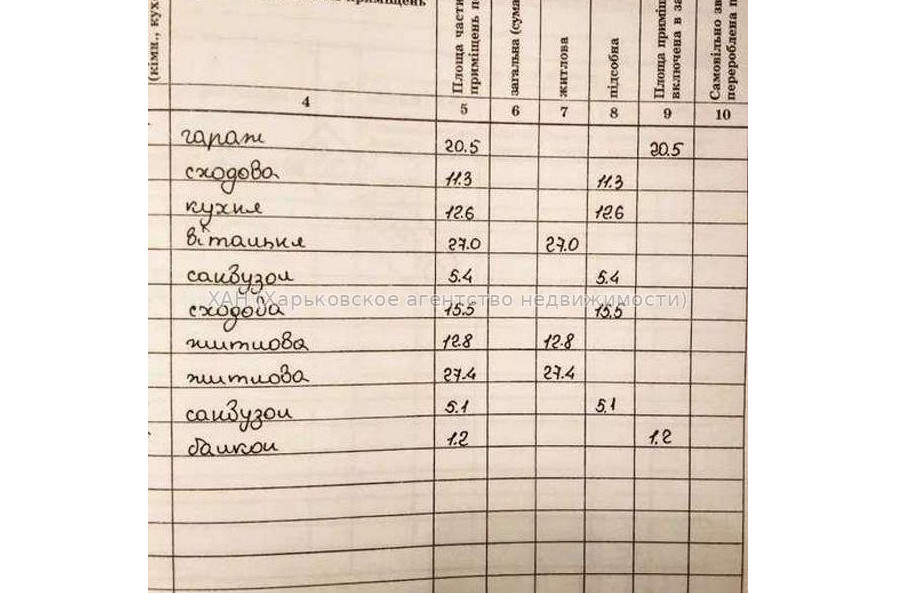 (кімн., кух
приміщень
Площа части
приміщень по
загальна (сума
житлова
підсобна
Площа приміщ
включена в за
Самовільно зв
перероблена п
4 5 6 7 8 9 10
гараж 20.5 20.5
сходова 11.3 11.3
кухня 12.6 12.6
вітальня 27.0 27.0
санвузол 5.4 5.4
ХАН (Харьковское агентство недвижимости)
сходова 15.5 15.5
житлова 12.8 12.8
житлова 27.4 27.4
санвузол 5.1 5.1
балкон 1.2 1.2